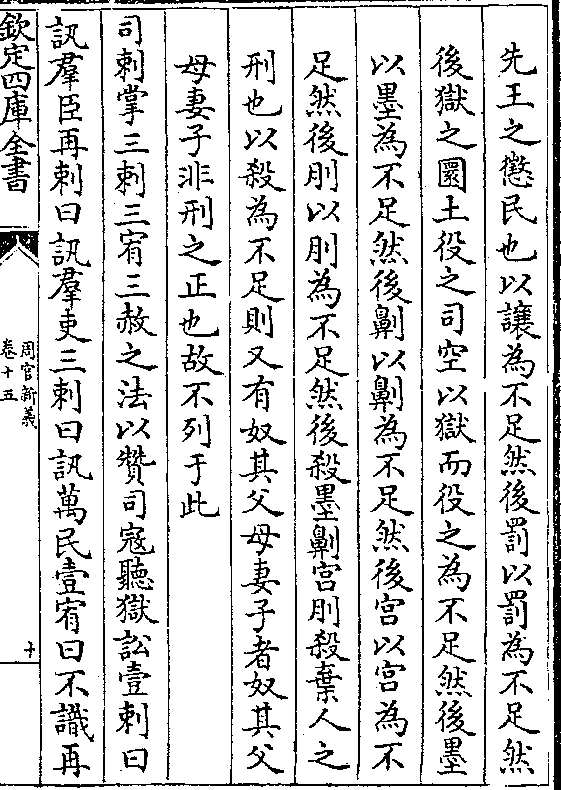 先王之懲民也以讓為不足然後罰以罰為不足然
後獄之圜土役之司空以獄而役之為不足然後墨
以墨為不足然後劓以劓為不足然後宫以宫為不
足然後刖以刖為不足然後殺墨劓宫刖殺棄人之
刑也以殺為不足則又有奴其父母妻子者奴其父
母妻子非刑之正也故不列于此
司刺掌三刺三宥三赦之法以贊司寇聽獄訟壹刺曰
訊羣臣再刺曰訊羣吏三刺曰訊萬民壹宥曰不識再
欽定四庫全書
周官新義
卷十五
十